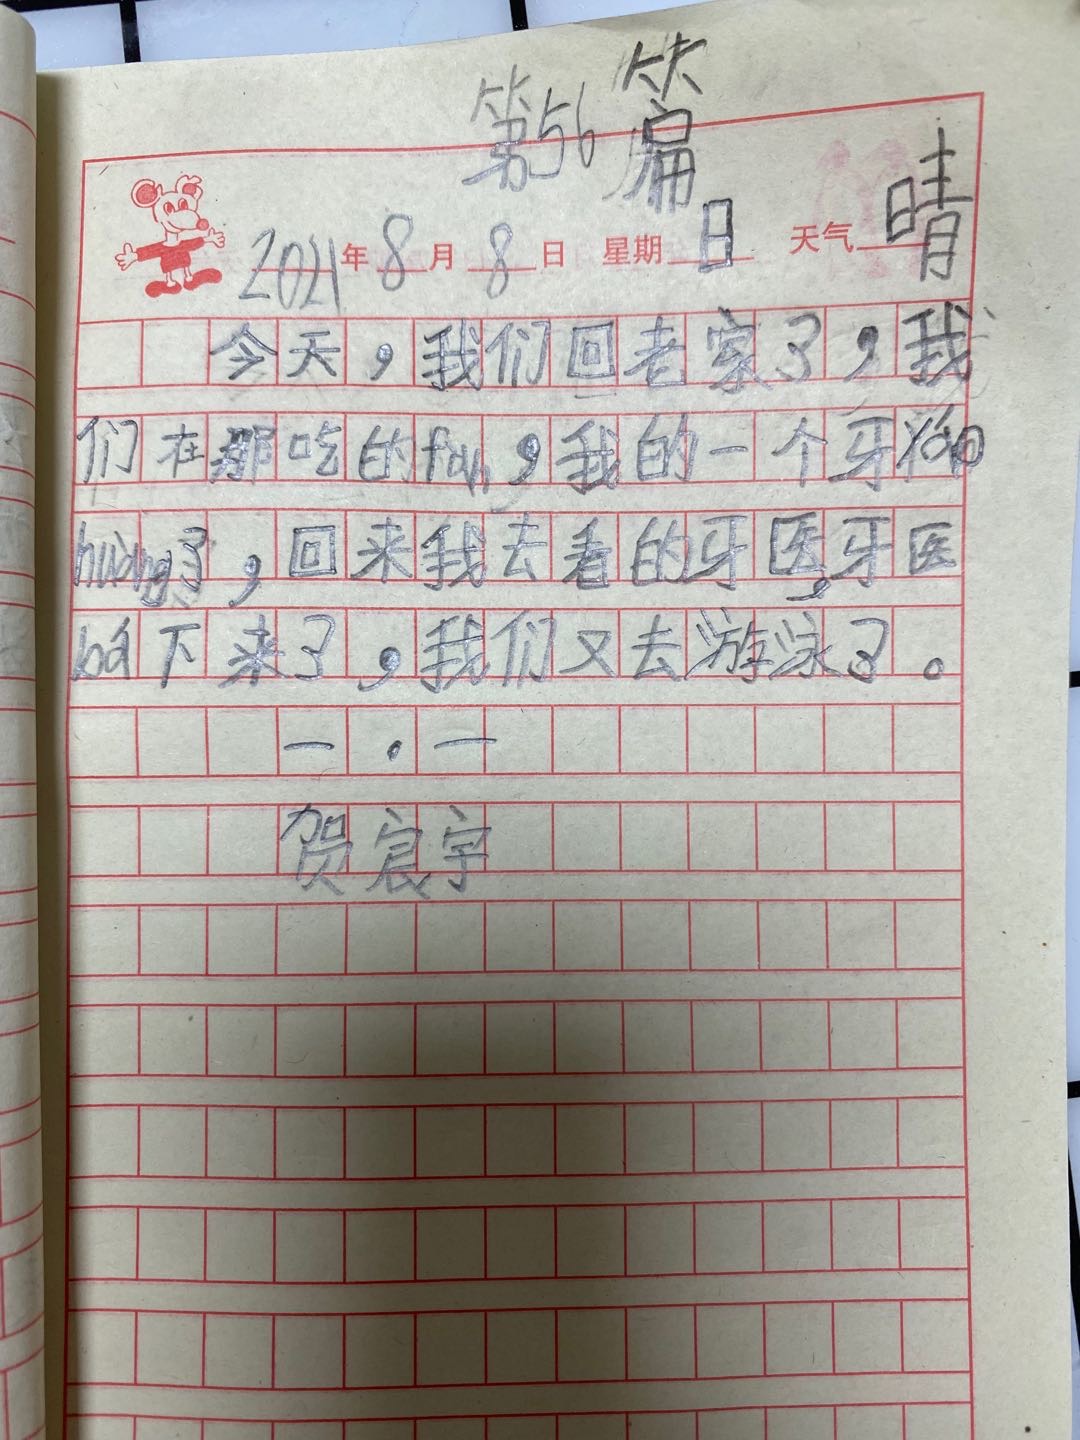 第56篇
2021年8月8日 星期日 天气晴
今天，我们回老家了，我
们在那吃的fan，我的一个牙yao
huang了，回来我去看的牙医，牙医
ba下来了，我们又去游泳了。
一·一
贺宸宇